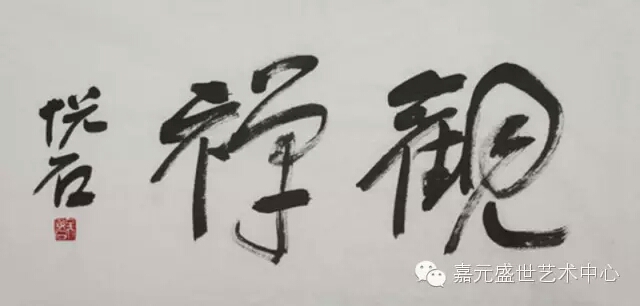 観禅
悦石
嘉元盛世艺术中心